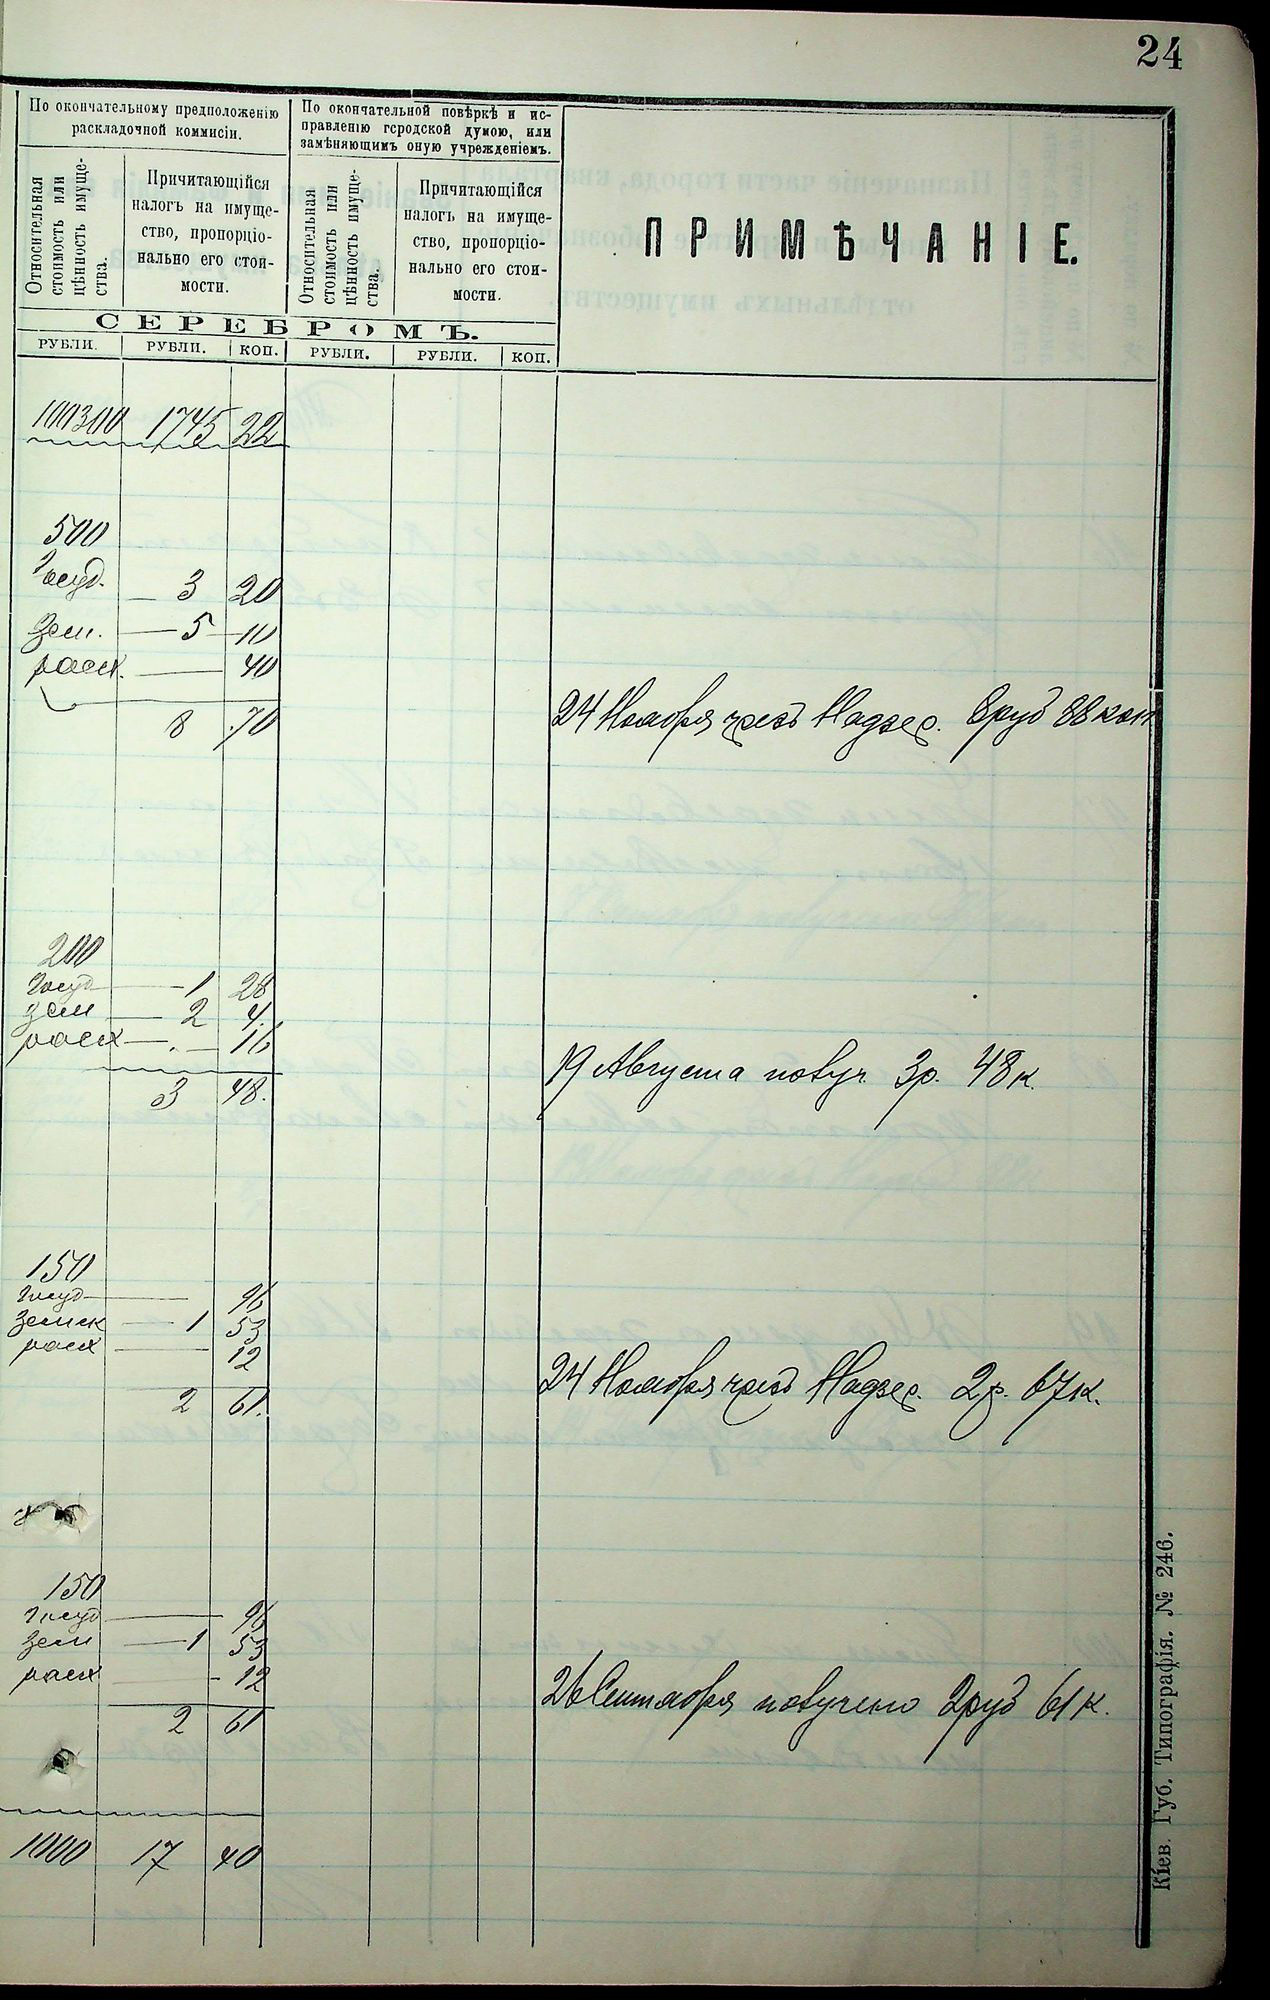 24
По окончательному предположенію
раскладочной коммисіи.
По окончательной повѣркѣ и ис-
правленію городской думою, или
замѣняющимъ оную учрежденіемъ.
Относительная
стоимость или
цѣнность имуще-
ства.
Причитающійся
налогъ на имуще-
ство, пропорціо-
нально его стои-
мости.
Относительная
стоимость или
цѣнность имуще-
ства.
Причитающійся
налогъ на имуще-
ство, пропорціо-
нально его стои-
мости.
ПРИМѢЧАНІЕ.
СЕРЕБРОМЪ.
РУБЛИ. РУБЛИ. КОП. РУБЛИ. РУБЛИ. КОП.
100300 1745 22
500
Госуд. 3 20
Зем. 5 10
расх. 40
8 70
24 Ноября чрезъ Надзер. 8 руб 88 коп
200
Госуд 1 28
зем 2 4.
расх 16
3 48.
19 Августа получ 3р. 48 к.
150
Госуд 96
Земск 1 53
расх 12
2 61.
24 Ноября чрезъ Надзер. 2 р. 67 к.
150
Госуд 96
Зем 1 53
расх 12
2 61
26 Сентября получено 2 руб 61 к.
1000 17 40
Кіев. Губ. Типографія. № 246.